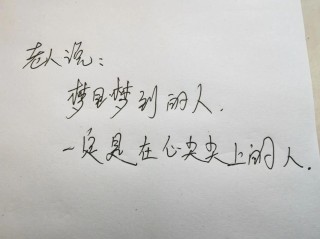 老人说：
梦里梦到的人，
一定是在心尖尖上的人.